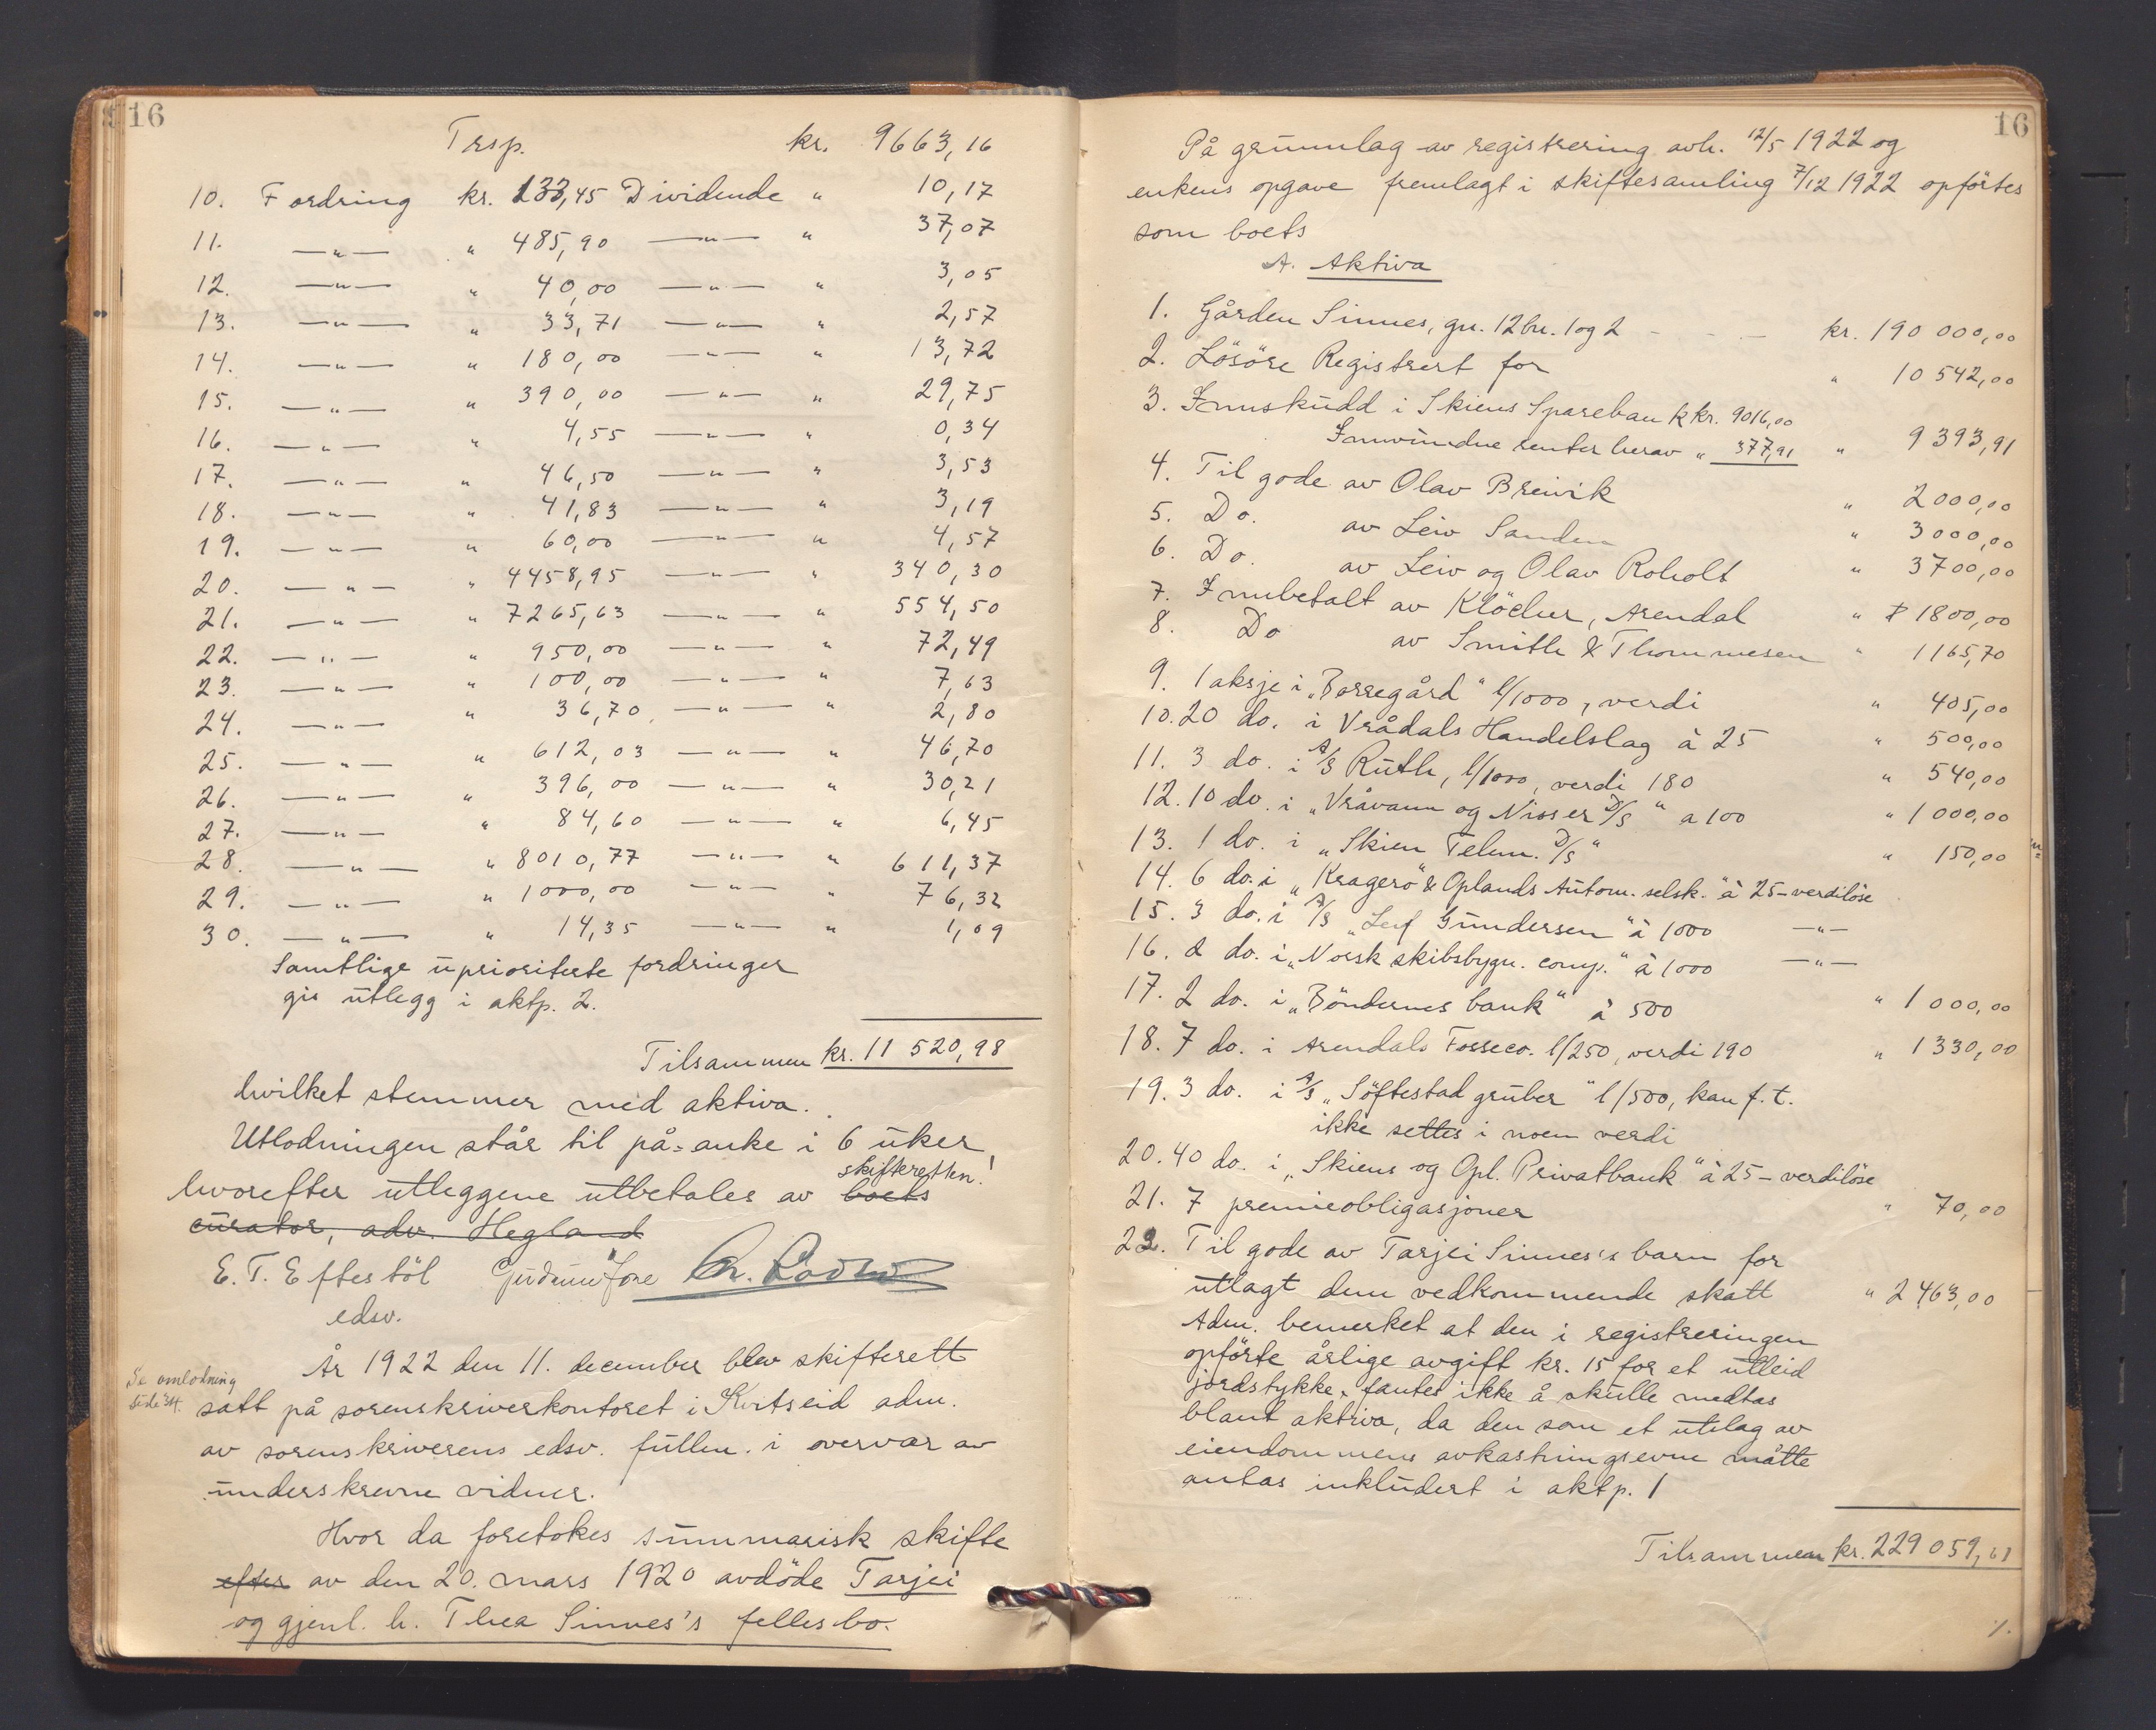 16
Trsp. kr. 9663,16
10. Fordring kr. 133,45 Dividende " 10,17
11. —"— " 485,90 —"— " 37,07
12. —"— " 40,00 —"— " 3,05
13. —"— " 33,71 —"— " 2,57
14. —"— " 180,00 —"— " 13,72
15. —"— " 390,00 —"— " 29,75
16. —"— " 4,55 —"— " 0,34
17. —"— " 46,50 —"— " 3,53
18. —"— " 41,83 —"— " 3,19
19. —"— " 60,00 —"— " 4,57
20. —"— " 4458,95 —"— " 340,30
21. —"— " 7265,63 —"— " 554,50
22. —"— " 950,00 —"— " 72,49
23. —"— " 100,00 —"— " 7,63
24. —"— " 36,70 —"— " 2,80
25. —"— " 612,03 —"— " 46,70
26. —"— " 396,00 —"— " 30,21
27. —"— " 84,60 —"— " 6,45
28. —"— " 8010,77 —"— " 611,37
29. —"— " 1000,00 —"— " 76,32
30. —"— " 14,35 —"— " 1,09
Samtlige uprioriterte fordringer
gis utlegg i aktp. 2.
Tilsammen kr. 11 520,98
hvilket stemmer med aktiva.
Utlodningen står til på-anke i 6 uker,
skifteretten!
hvorefter utleggene utbetales av boets
curator, adv. Hegland
E. T. Eftestöl Gudmund
edsv.
År 1922 den 11. december blev skifterett
Se omlodning
side 34.
satt på sorenskriverkontoret i Kvitseid adm.
av sorenskriverens edsv. fullm. i overvær av
underskrevne vidner.
Hvor da foretokes summarisk skifte
efter av den 20. mars 1920 avdöde Tarjei
og gjenl. h. Thea Sinnes's fellesbo.
16
På grunnlag av registrering avh. 12/5 1922 og
enkens opgave fremlagt i skiftesamling 7/12 1922 opförtes
som boets
A. Aktiva
1. Gården Sinnes, gn. 12 bn. 1 og 2 - - - kr. 190 000,00
2. Lösöre Registrert for " 10 542,00
3. Innskudd i Skiens Sparebank kr. 9016,00
Innvundne renter herav " 377,91 " 9 393,91
4. Til gode av Olav Breivik " 2000,00
5. Do. av Leiv Sanden " 3000,00
6. Do. av Leiv og Olav Roholt " 3700,00
7. Innbetalt av Klöcker, Arendal " 1800,00
8. Do av Smith & Thommesen " 1165,70
9. 1 aksje i „Borregård" l/1000, verdi " 405,00
10. 20 do. i Vrådals Handelslag à 25 " 500,00
11. 3 do. i A/S Ruth, l/1000, verdi 180 " 540,00
12. 10 do. i „Vråvann og Nisser D/S" a 100 " 1000,00
13. 1 do. i „Skien Telem. D/S" " 150,00
14. 6 do. i „Kragerö & Oplands Autom. selsk." à 25 - verdilöse
15. 3 do. i A/S „Leif Gundersen" à 1000 —"—
16. 2 do. i „Norsk skibsbygn. comp." à 1000 —"—
17. 2 do. i „Böndernes bank" à 500 " 1 000,00
18. 7 do. i Arendals Fosseco. l/250, verdi 190 " 1330,00
19. 3 do. i A/S „Söftestad gruber" l/500, kan f. t.
ikke settes i noen verdi
20. 40 do. i „Skiens og Opl. Privatbank" à 25 - verdilöse
21. 7 premieobligasjoner " 70,00
22. Til gode av Tarjei Sinnes's barn for
utlagt dem vedkommende skatt " 2463,00
Adm. bemerket at den i registreringen
opförte årlige avgift kr. 15 for et utleid
jordstykke, fantes ikke å skulle medtas
blant aktiva, da den som et utslag av
eiendommens avkastningsevne måtte
antas inkludert i aktp. 1
Tilsammen kr. 229 059,61